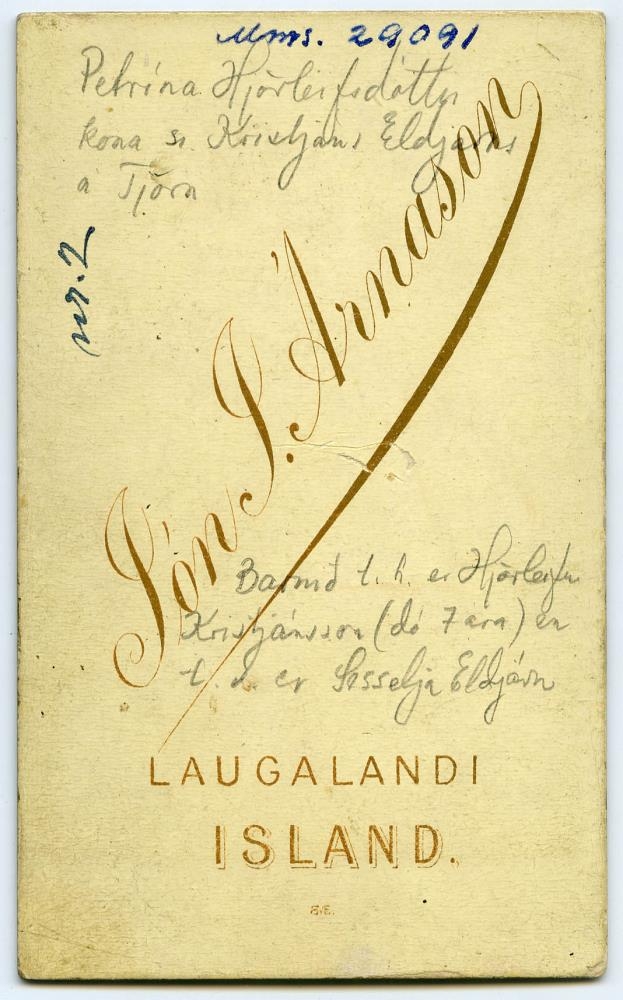 Mms. 29091
Petrína Hjörleifsdóttir
kona sr. Kristjáns Eldjárns
á Tjörn
nr. 2
Jón J. Árnason
Barnið t. h. er Hjörleifur
Kristjánsson (dó 7 ára) en
t. er Sesselja Eldjárn
LAUGALANDI
ISLAND.